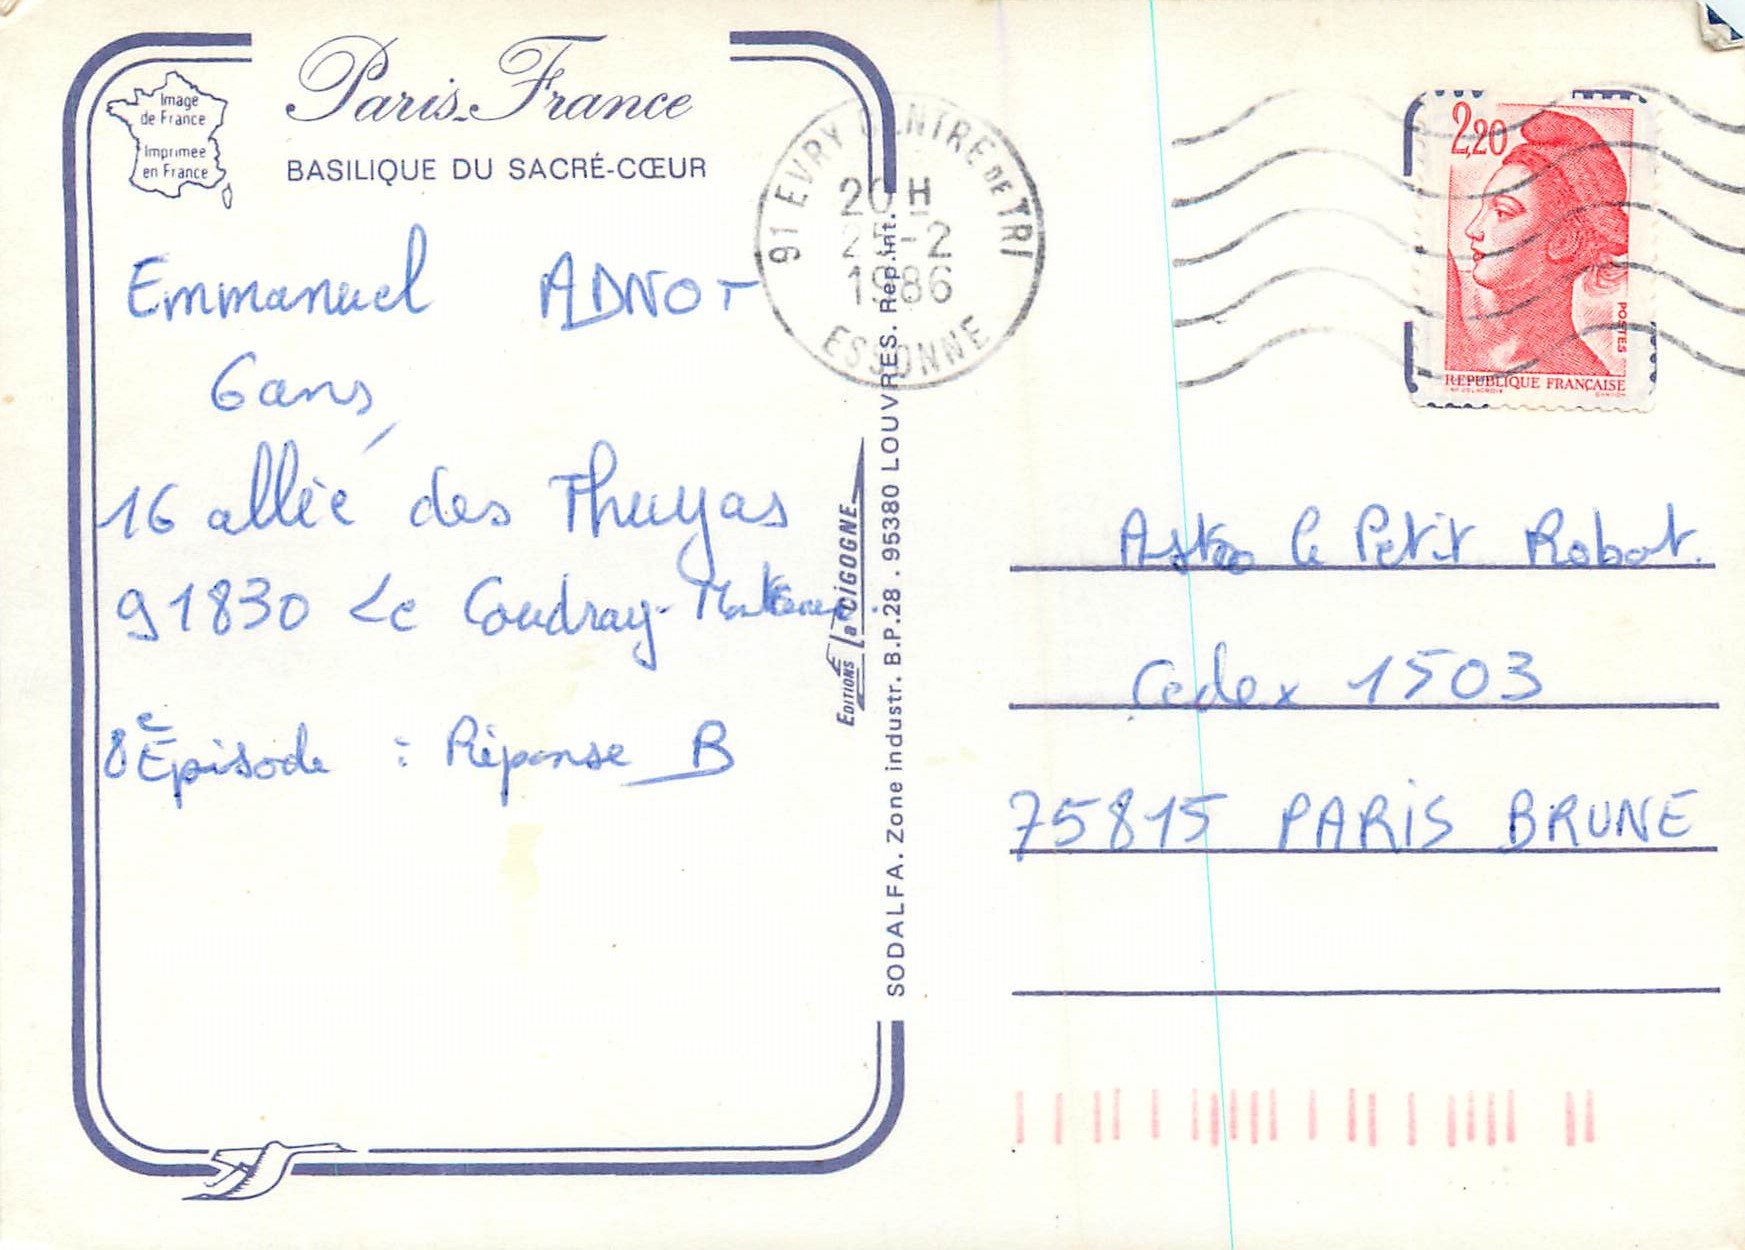 Paris_France
Image
de France
Imprimée
en France
BASILIQUE DU SACRÉ-CŒUR
Emmanuel ADNOT
6 ans,
16 allée des Thuyas
91830 Le Coudray-
8e Épisode : Réponse B
EDITIONS la CIGOGNE
SODALFA. Zone industr. B.P.28. 95380 LOUVRES. Rep.int.
91 EVRY CENTRE DE TRI
20 H
-2
1986
ESSONNE
2,20
POSTES
REPUBLIQUE FRANÇAISE
Astro le Petit Robot.
Cedex 1503
75815 PARIS BRUNE